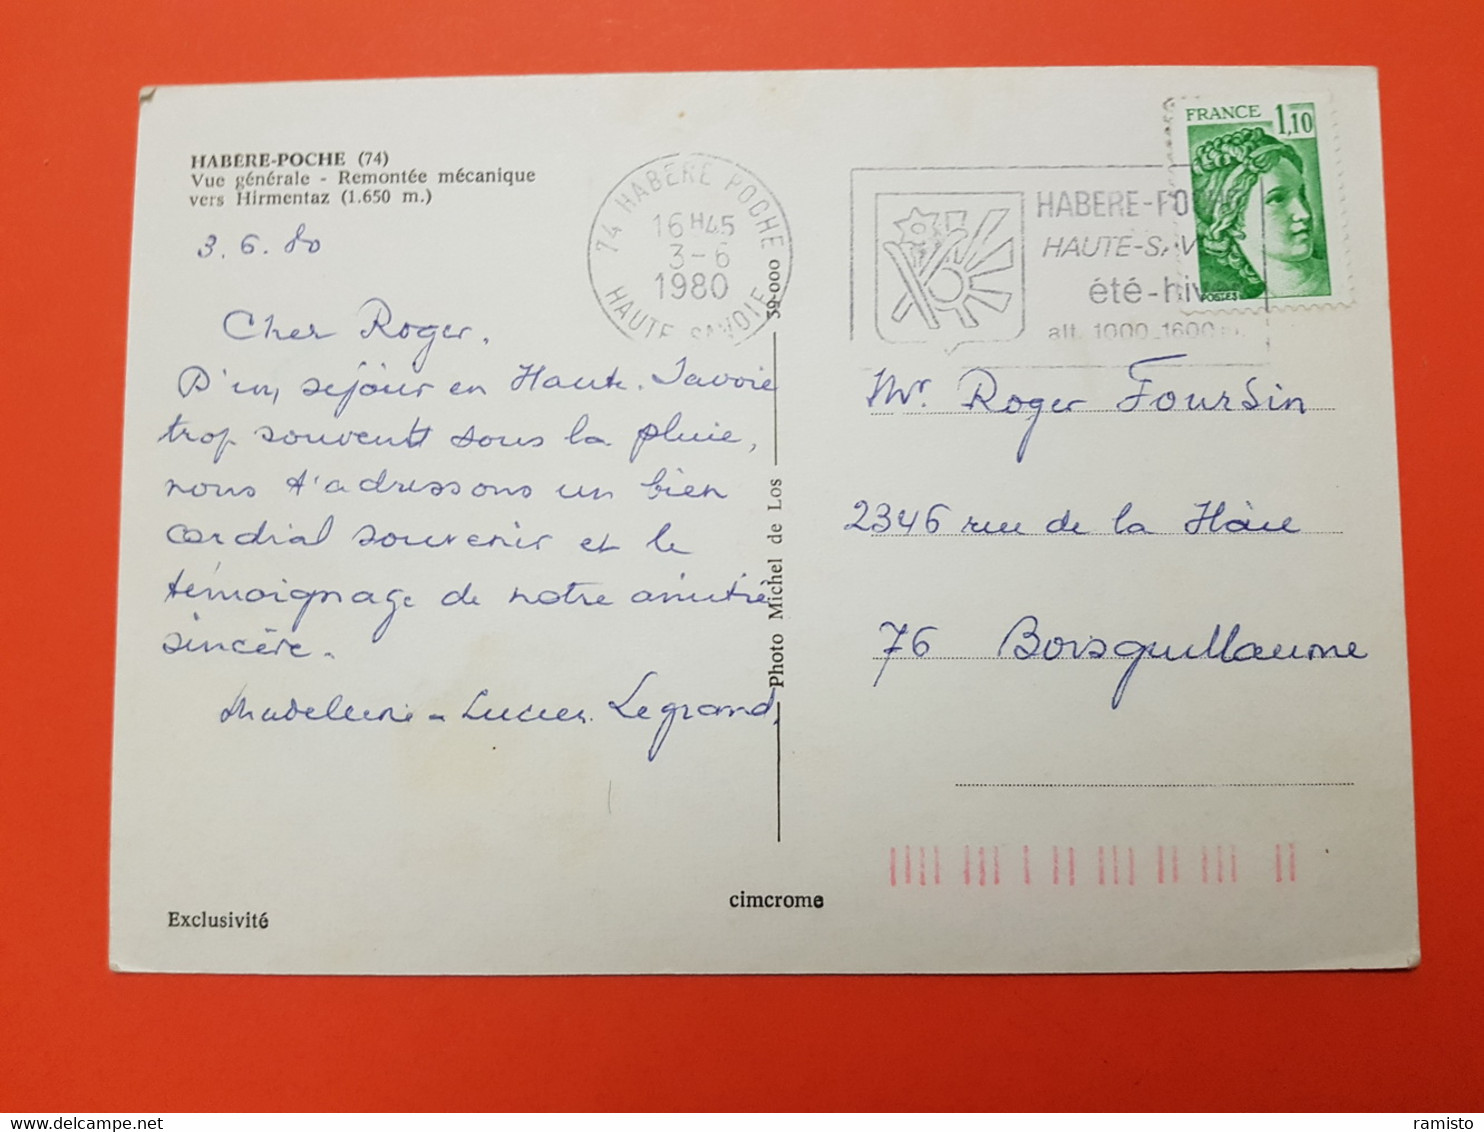 HABÈRE-POCHE (74)
Vue générale - Remontée mécanique
vers Hirmentaz (1.650 m.)
3.6.80
Cher Roger,
D'un séjour en Haute-Savoie
trop souvent sous la pluie,
nous t'adressons un bien
cordial souvenir et le
témoignage de notre amitié
sincère.
Madeleine - Lucien Legrand
Exclusivité
cimcrome
Photo Michel de Los
39-000
74 HABERE POCHE
16 H45
3-6
1980
HAUTE SAVOIE
HABERE-PO
HAUTE-SAV
été-hiv
alt. 1000-1600
FRANCE 1,10
POSTES
Mr. Roger Foursin
2346 rue de la Haie
76 Boisguillaume
delcampe.net
ramisto